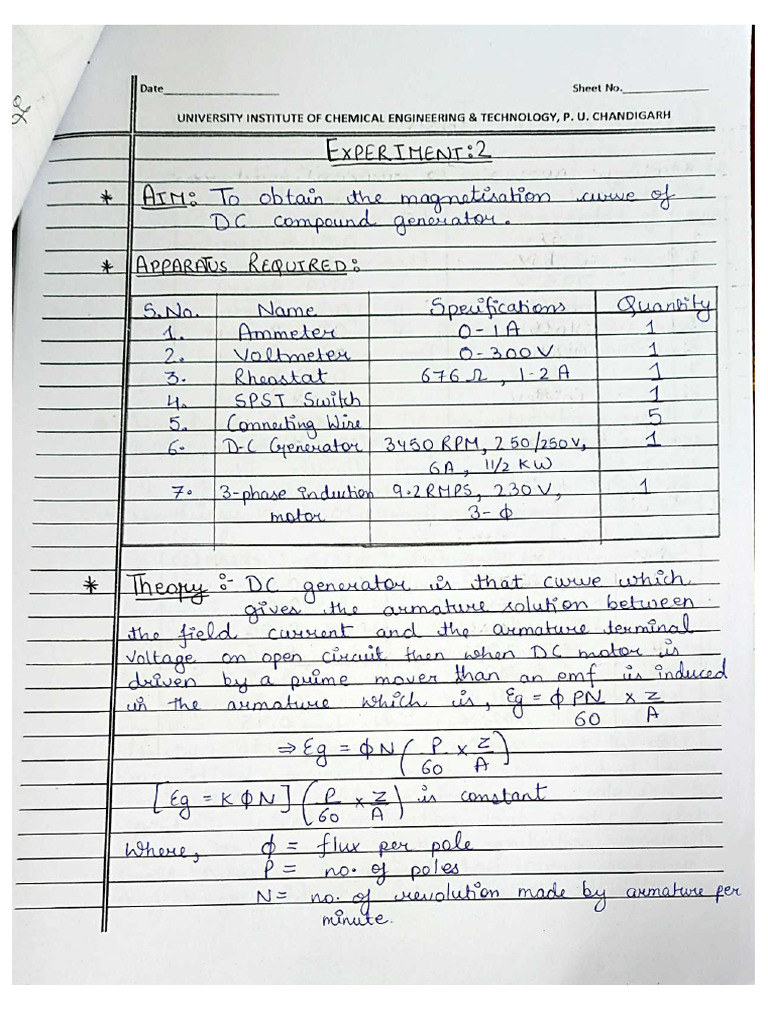 Date
Sheet No.
UNIVERSITY INSTITUTE OF CHEMICAL ENGINEERING & TECHNOLOGY, P. U. CHANDIGARH
EXPERIMENT:2
* AIM: To obtain the magnetisation curve of
DC compound generator.
* APPARATUS REQUIRED:
S.No. Name Specifications Quantity
1. Ammeter 0-1A 1
2. Voltmeter 0-300V 1
3. Rheostat 676 Ω, 1.2 A 1
4. SPST Switch 1
5. Connecting Wire 5
6. D-C Generator 3450 RPM, 250/250V, 1
6A, 11/2 KW
7. 3-phase induction 9.2 RMPS, 230V, 1
motor 3-ϕ
* Theory:- DC generator is that curve which
gives the armature solution between
the field current and the armature terminal
voltage on open circuit then when DC motor is
driven by a prime mover than an emf is induced
in the armature which is, Eg = ϕ PN/60 x Z/A
⇒ Eg = ϕN (P/60 x Z/A)
[Eg = K ϕN] (P/60 x Z/A) is constant
Where, ϕ = flux per pole
P = no. of poles
N = no. of revolution made by armature per
minute.